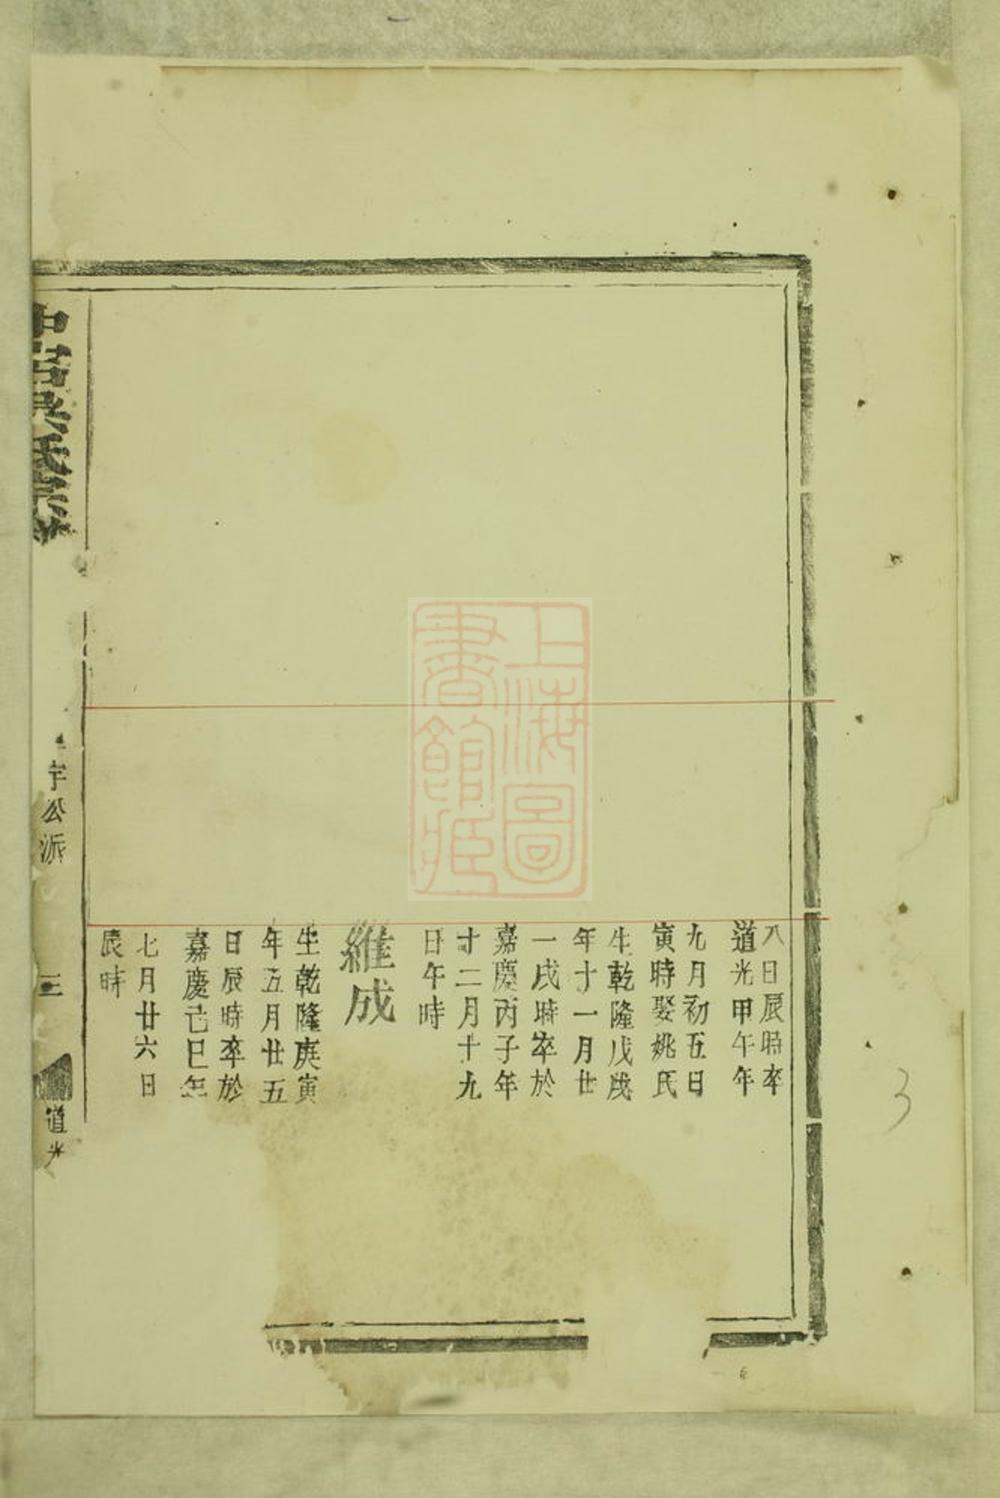 八日辰時卒
道光甲午年
九月初五日
寅時娶姚氏
生乾隆戊戌
年十一月廿
一戌時卒於
嘉慶丙子年
十二月十九
日午時
維成
生乾隆庚寅
年五月廿五
日辰時卒於
嘉慶己巳年
七月廿六日
辰時
吳氏宗
宇公派
三
道光
上海圖
書館藏
3